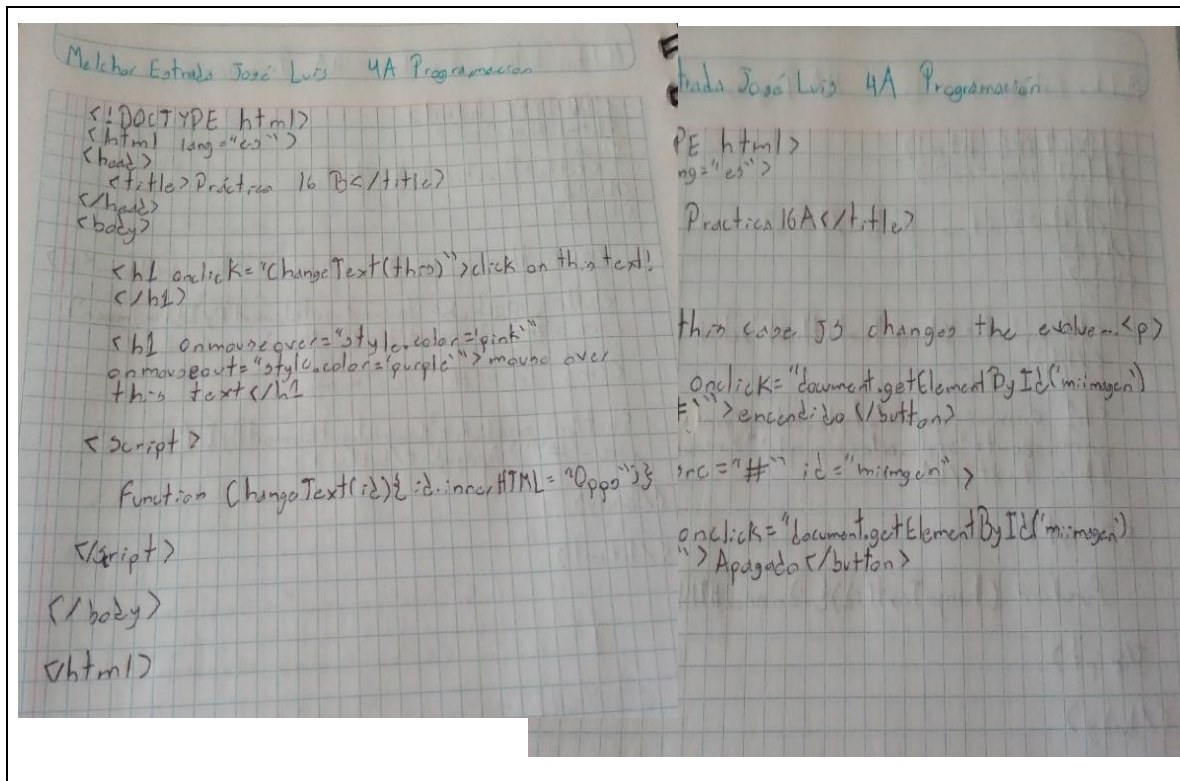 Melchor Estrada José Luis 4A Programacion
<!DOCTYPE html>
<html lang="es">
<head>
<title>Práctica 16 B</title>
</head>
<body>
<h1 onclick="ChangeText(this)">click on this text!
</h1>
<h1 onmouseover="style.color='pink'"
onmouseout="style.color='purple'">mouse over
this text</h1
<script>
Function ChangeText(id){id.innerHTML="Opps";}
</script>
</body>
</html>
trada José Luis 4A Programación
PE html>
ng="es">
Practica 16A</title>
this case JS changes the <p>
onclick="document.getElementById('miimagen')
=''">encendido</button>
src="#" id="miimgen">
onclick="document.getElementById('miimagen')
">Apagado</button>